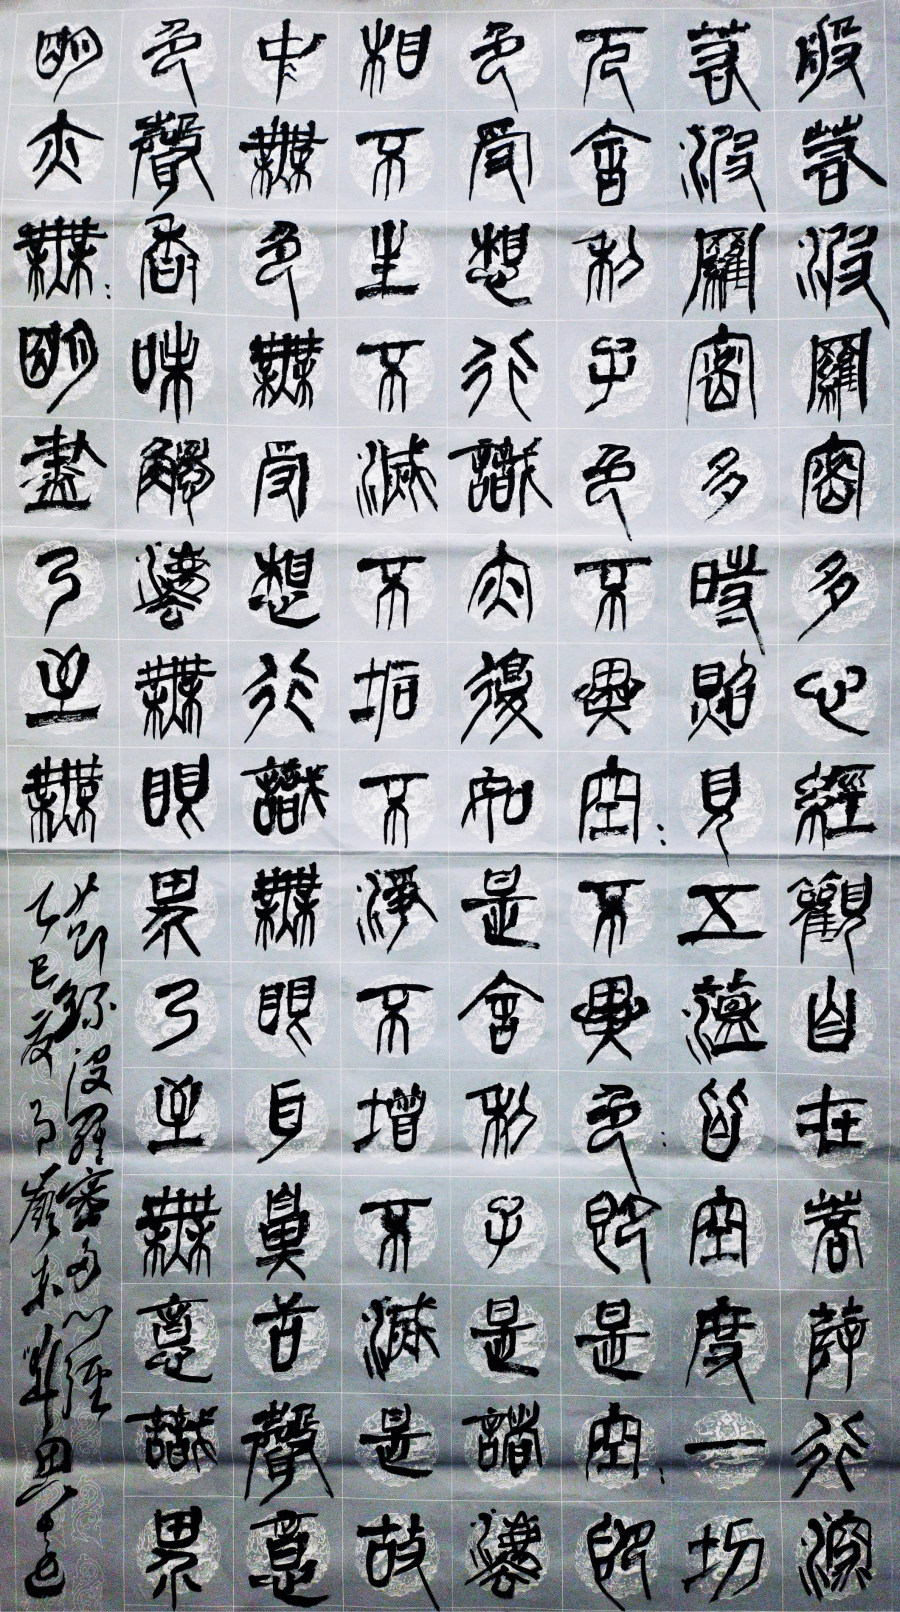 般若波羅密多心經觀自在菩薩行深
若波羅密多時照見五蘊皆空度一切
厄舍利子色不異空:不異色:即是空:即
色受想行識亦復如是舍利子是諸法
相不生不滅不垢不淨不增不滅是故
中無色無受想行識無眼耳鼻舌聲意
色聲香味觸法無眼界乃至無意識界
明亦無:明盡乃至無
節錄波羅密多心經
乙巳夏月